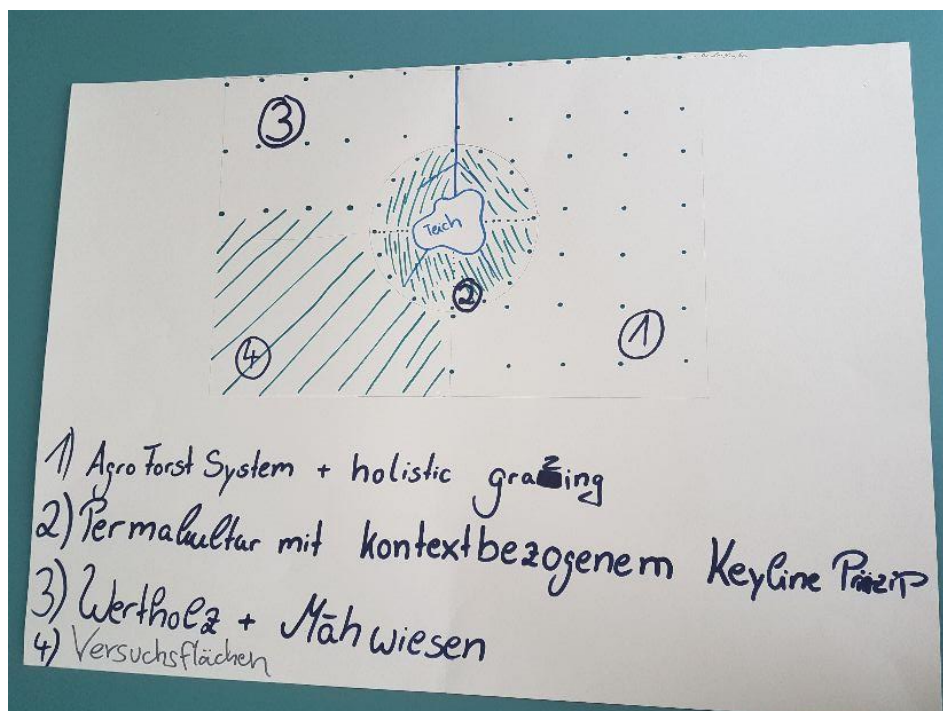 3
Teich
2
1
4
1) Agro Forst System + holistic grazing
2) Permakultur mit kontextbezogenem Keyline Prinzip
3) Wertholz + Mähwiesen
4) Versuchsflächen